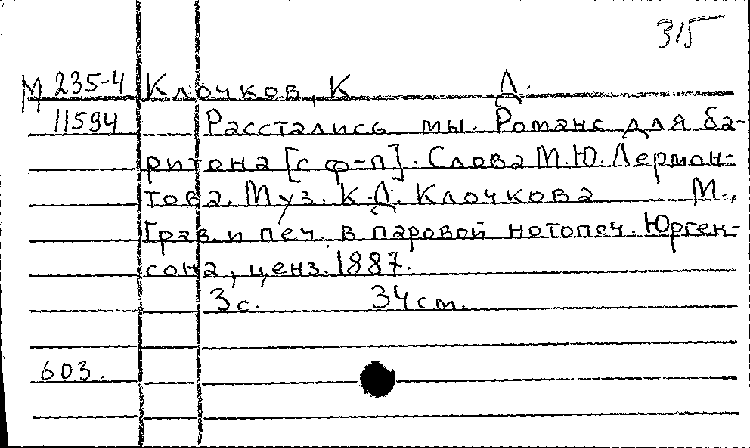 315
М 235-4 Клочков, К Д.
11594 Расстались мы. Романс для ба-
ритона [с ф-п]. Слова М.Ю. Лермон-
това. Муз. К.Д. Клочкова М.,
Грав. и печ. в паровой нотопеч. Юрген-
сона, ценз. 1887.
3с. 34см.
603.